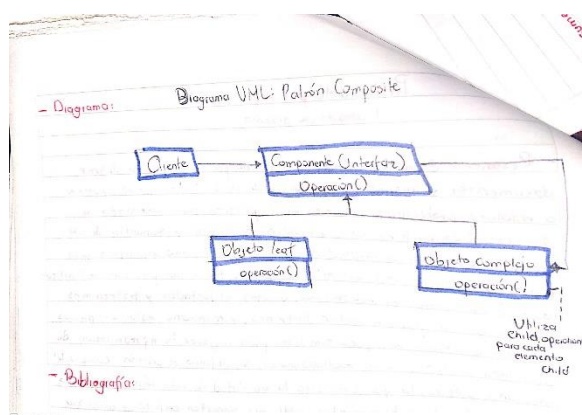 Diagrama UML: Patrón Composite
- Diagrama:
Cliente
Componente (Interfaz)
Operación()
Objeto leaf
operación()
Objeto Complejo
operación()
Utiliza
child.operation
para cada
elemento
child
- Bibliografía: